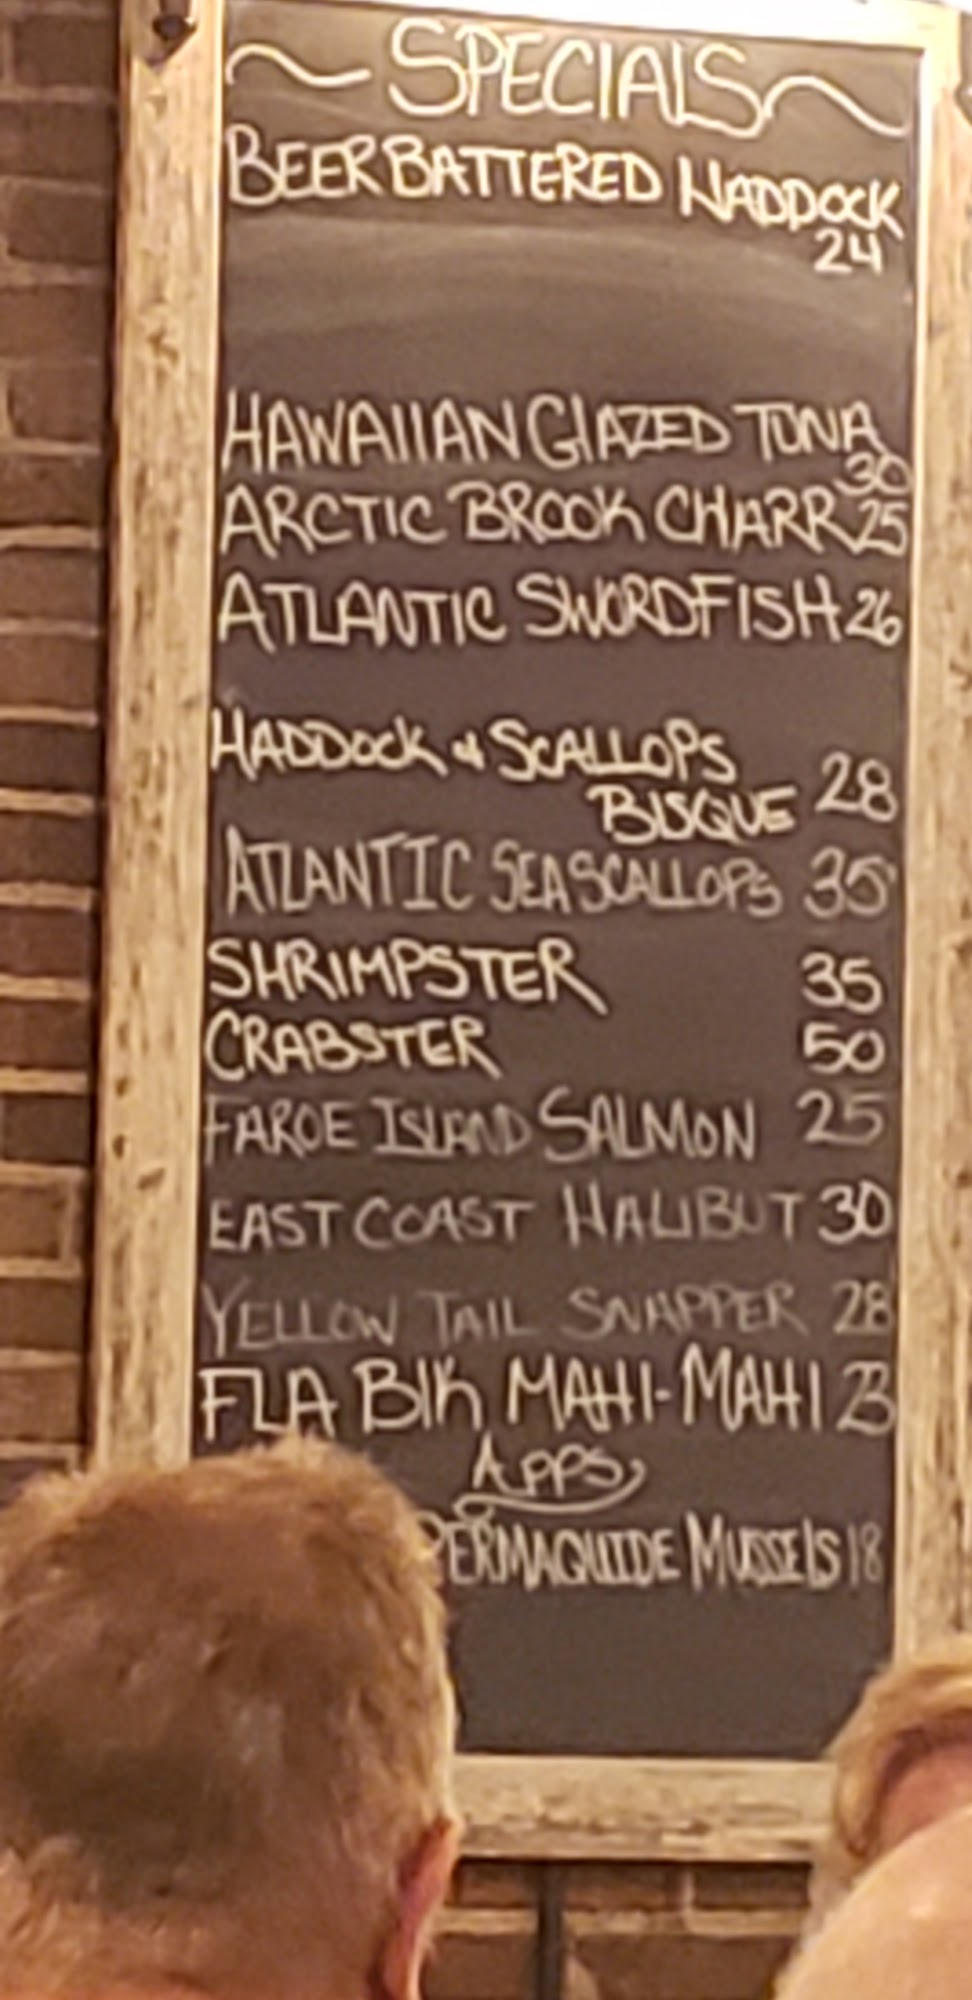 ~ SPECIALS ~
BEER BATTERED HADDOCK
24
HAWAIIAN GLAZED TUNA
30
ARCTIC BROOK CHARR 25
ATLANTIC SWORDFISH 26
HADDOCK & SCALLOPS
BISQUE 28
ATLANTIC SEA SCALLOPS 35
SHRIMPSTER 35
CRABSTER 50
FAROE ISLAND SALMON 25
EAST COAST HALIBUT 30
YELLOW TAIL SNAPPER 28
FLA Blk MAHI-MAHI 23
APPS
PERMAQUIDE MUSSELS 18